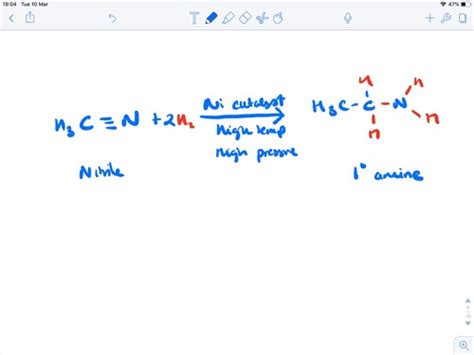 19:04 Tue 10 Mar
47%
H₃C≡N + 2H₂
Ni catalyst
High temp
High pressure
H
H₃C-C-N
H
H
H
Nitrile
1° amine